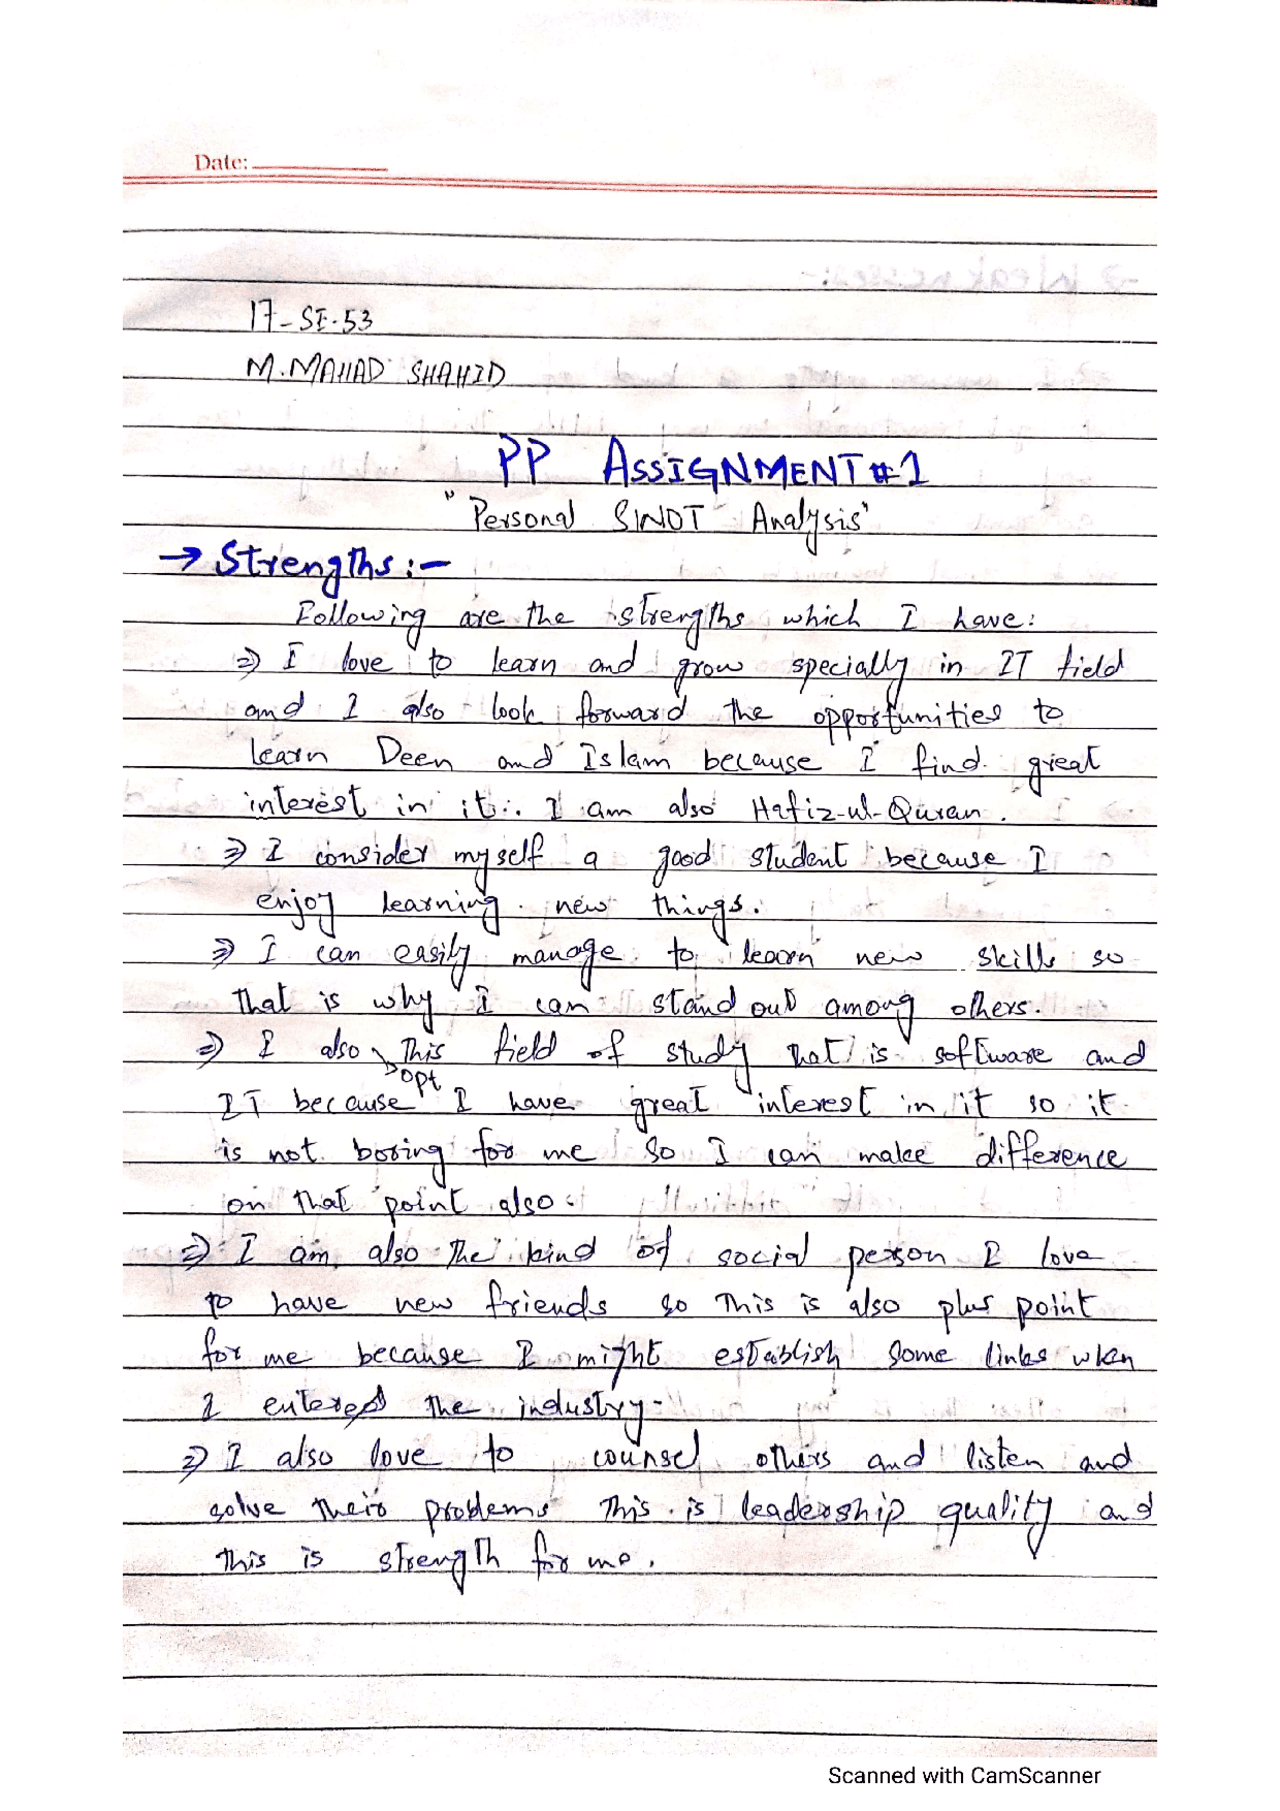 Date:
17-SE-53
M.MAHAD SHAHID
PP ASSIGNMENT #1
"Personal SWOT Analysis"
→ Strengths:-
Following are the strengths which I have:
⇒ I love to learn and grow specially in IT field
and I also look forward the opportunities to
learn Deen and Islam because I find great
interest in it. I am also Hafiz-ul-Quran.
⇒ I consider myself a good student because I
enjoy learning new things.
⇒ I can easily manage to learn new skills so
that is why I can stand out among others.
⇒ I also opt this field of study that is software and
IT because I have great interest in it so it
is not boring for me so I can make difference
on that point also.
⇒ I am also the kind of social person I love
to have new friends so this is also plus point
for me because I might establish some links when
I entered the industry.
⇒ I also love to counsel others and listen and
solve their problems this is leadership quality and
this is strength for me.
Scanned with CamScanner